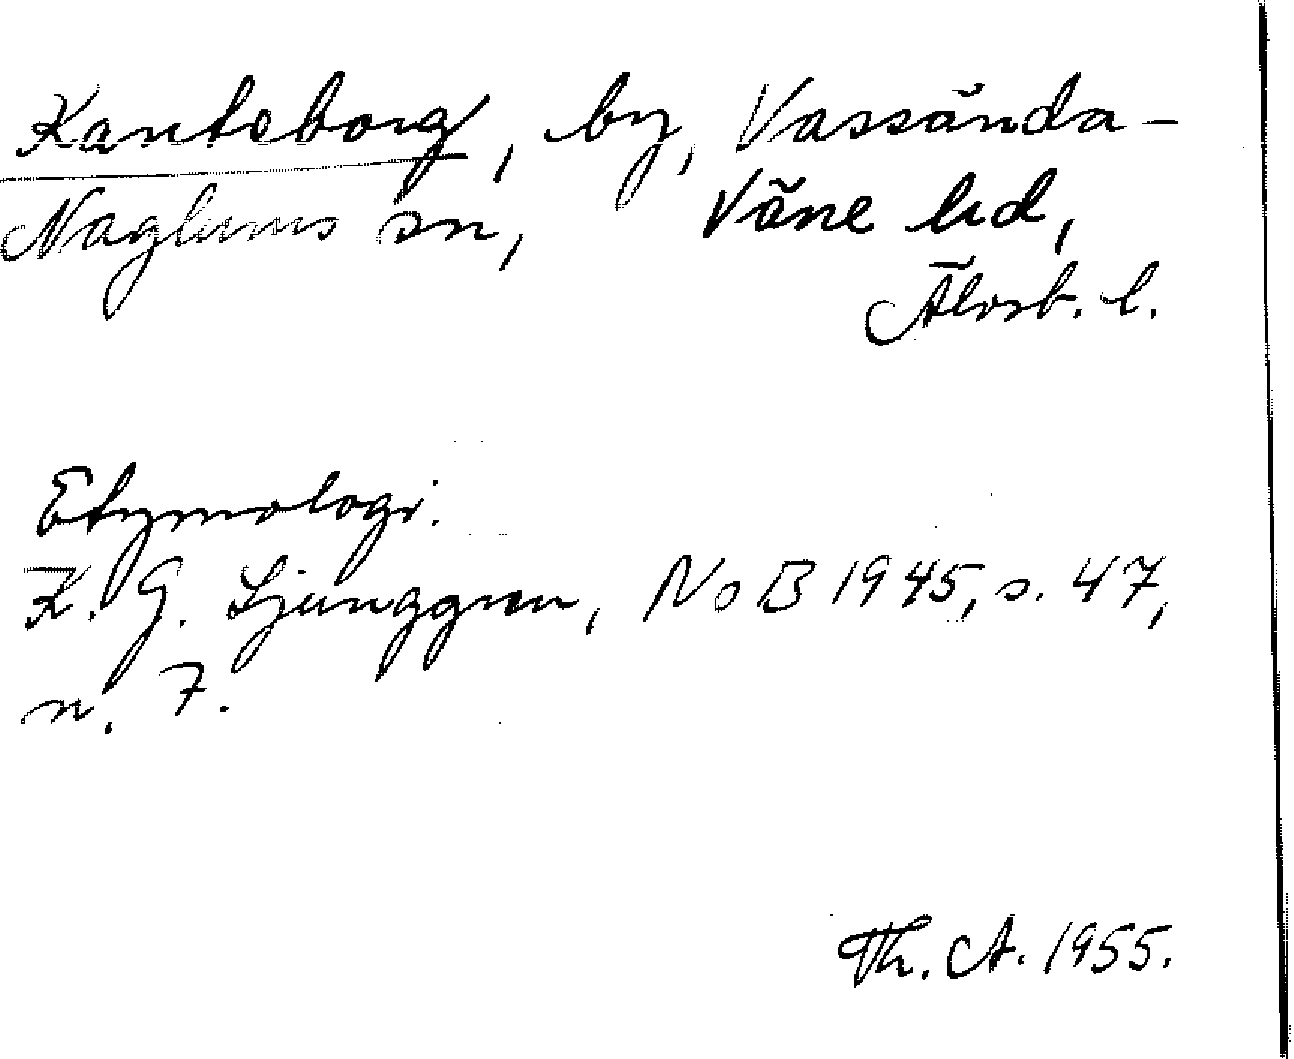 Kanteborg, by, Vassända-
Naglums sn, Väne hd,
Älvsb. l.
Etymologi.
K. G. Ljunggren, NoB 1945, s. 47,
n. 7.
Th. A. 1955.